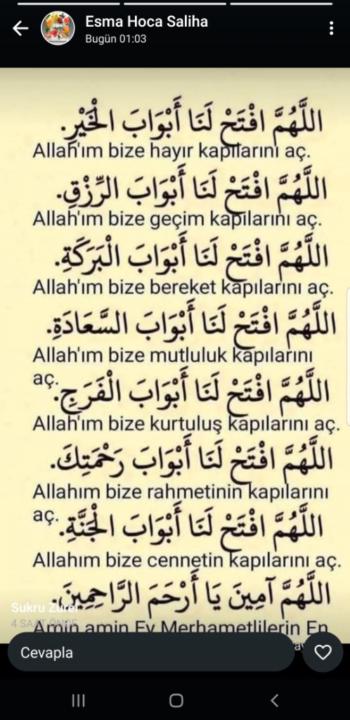 Esma Hoca Saliha
Bugün 01:03
اللَّهُمَّ افْتَحْ لَنَا أَبْوَابَ الْخَيْرِ.
Allah'ım bize hayır kapılarını aç.
اللَّهُمَّ افْتَحْ لَنَا أَبْوَابَ الرِّزْقِ.
Allah'ım bize geçim kapılarını aç.
اللَّهُمَّ افْتَحْ لَنَا أَبْوَابَ الْبَرَكَةِ.
Allah'ım bize bereket kapılarını aç.
اللَّهُمَّ افْتَحْ لَنَا أَبْوَابَ السَّعَادَةِ.
Allah'ım bize mutluluk kapılarını
aç.
اللَّهُمَّ افْتَحْ لَنَا أَبْوَابَ الْفَرَجِ.
Allah'ım bize kurtuluş kapılarını aç.
اللَّهُمَّ افْتَحْ لَنَا أَبْوَابَ رَحْمَتِكَ.
Allahım bize rahmetinin kapılarını
aç.
اللَّهُمَّ افْتَحْ لَنَا أَبْوَابَ الْجَنَّةِ.
Allahım bize cennetin kapılarını aç.
اللَّهُمَّ آمِينَ يَا أَرْحَمَ الرَّاحِمِينَ.
Sukru
4 SAAT ÖNCE
Amin amin Ey Merhametlilerin En
Cevapla